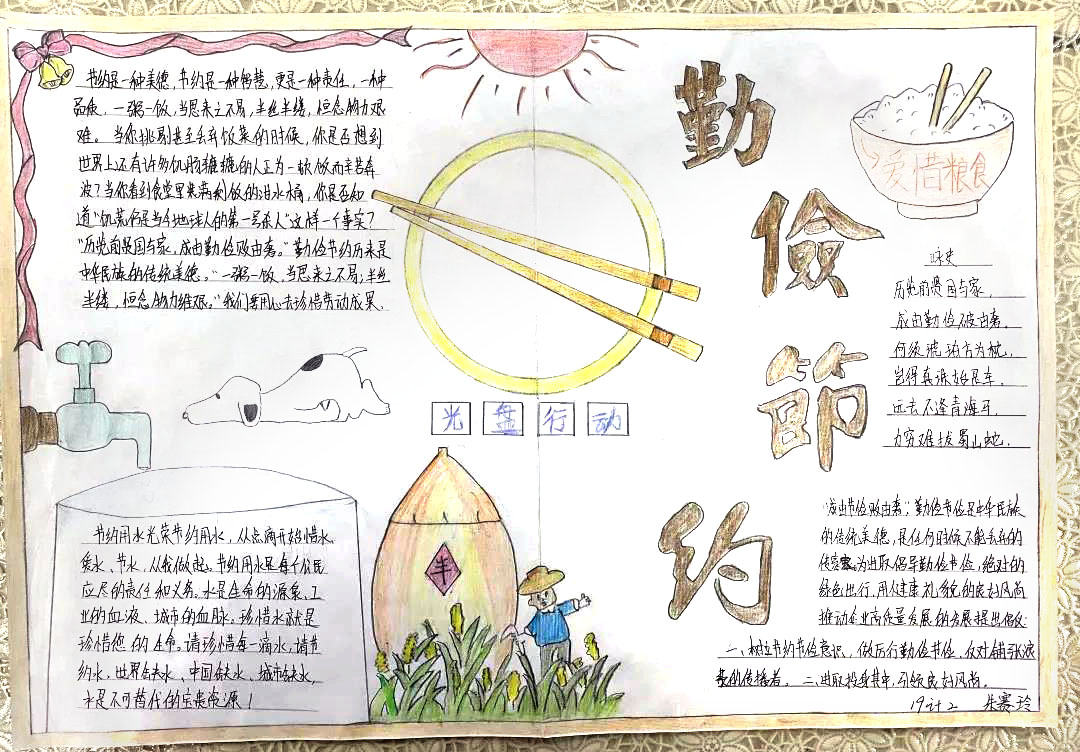 节约是一种美德，节约是一种智慧，更是一种责任，一种
品质。一粥一饭，当思来之不易，半丝半缕，恒念物力艰
难。当你挑剔甚至丢弃饭菜的时候，你是否想到
世界上还有许多饥肠辘辘的人正为一顿饭而辛苦奔
波？当你看到食堂里装满剩饭的泔水桶，你是否知
道"饥荒仍是当今地球人的第一号杀人"这样一个事实？
"历览前贤国与家，成由勤俭败由奢。"勤俭节约历来是
中华民族的传统美德。"一粥一饭，当思来之不易，半丝
半缕，恒念物力维艰。"我们要用心去珍惜劳动成果。
勤
儉
節
约
爱惜粮食
咏史
历览前贤国与家，
成由勤俭破由奢。
何须琥珀方为枕，
岂得真珠始是车，
远去不逢青海马，
力穷难拔蜀山蛇。
光盘行动
丰
节约用水光荣节约用水，从点滴开始惜水
爱水、节水，从我做起。节约用水是每个公民
应尽的责任和义务。水是生命的源泉、工
业的血液、城市的血脉。珍惜水就是
珍惜您的生命。请珍惜每一滴水，请节
约水，世界缺水、中国缺水、城市缺水，
水是不可替代的宝贵资源！
"成由节俭败由奢"，勤俭节俭是中华民族
的传统美德，是任何时候不能丢弃的
为出取倡导勤俭节俭，绝对的
绿色出行，用健康礼貌的良好风尚
推动企业高质量发展的发展提出倡议：
一、树立节约节俭意识，做厉行勤俭节俭，反对铺张浪
费的传播者。二、出取投身其中，引领良好风尚。
19计2 朱赛玲